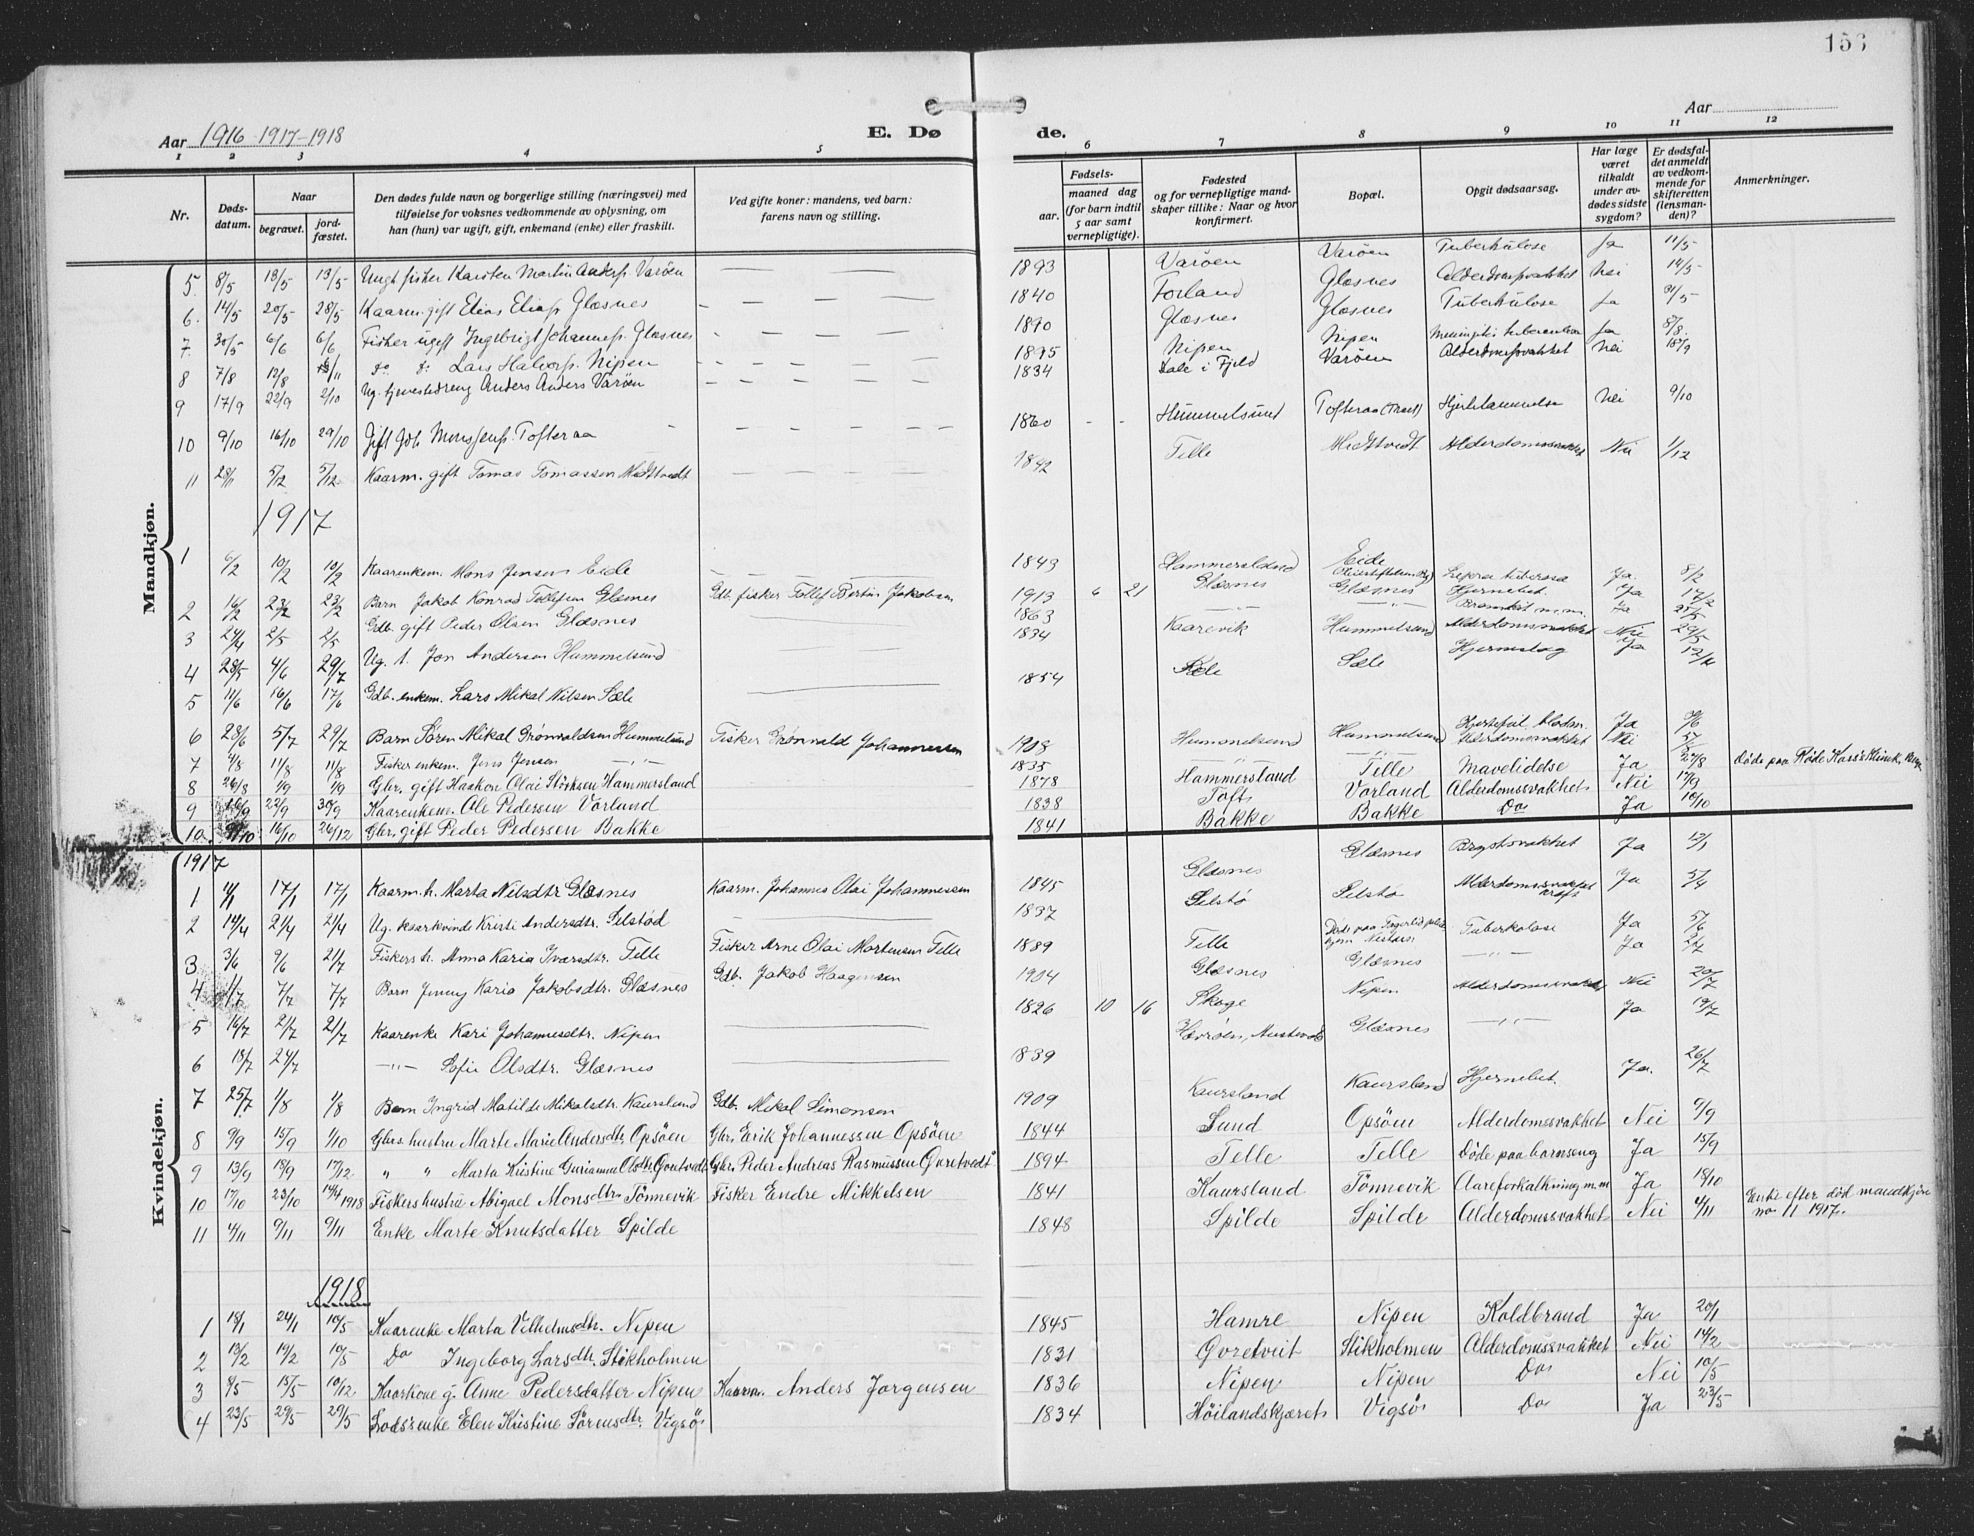 156
Aar 1916-1917-1918
E. Dø
de.
Aar
1 2 3 4 5
6 7 8 9 10 11 12
Nr.
Døds-
datum.
Naar
begravet.
jord-
fæstet.
Den dødes fulde navn og borgerlige stilling (næringsvei) med
tilføielse for voksnes vedkommende av oplysning, om
han (hun) var ugift, gift, enkemand (enke) eller fraskilt.
Ved gifte koner: mandens, ved barn:
farens navn og stilling.
Fødsels-
aar.
maaned dag
(for barn indtil
5 aar samt
vernepligtige).
Fødested
og for vernepligtige mand-
skaper tillike: Naar og hvor
konfirmert.
Bopæl.
Opgit dødsaarsag.
Har læge
været
tilkaldt
under av-
dødes sidste
sygdom?
Er dødsfal-
det anmeldt
av vedkom-
mende for
skifteretten
(lensman-
den)?
Anmerkninger.
Mandkjøn.
5 8/5 13/5 13/5 Ungk. fisker Karsten Martin Varöen 1893 Varöen Varöen Tuberkulose Ja 11/5
6 14/5 20/5 28/5 Kaarm. gift Elias Glæsnes 1840 Forland Glæsnes Nei 14/5
7 30/5 6/6 6/6 Fisher ugift Ingebrigt Glæsnes 1890 Glæsnes Glæsnes Tuberkulose Ja 31/5
8 7/8 12/8 Lars Halvors. Nipen 1895 Nipen Nipen Ja 8/8
9 17/9 22/9 2/10 Ug. Anders Anders Varöen 1834 Dale i Fjeld Varöen Nei 18/9
10 9/10 16/10 29/10 Gift Gdb. Tofteraa 1860 Hummelsund Tofteraa Nei 9/10
11 28/11 5/12 5/12 Kaarm. gift Tomas Tomassen Midttvedt Telle Midttvedt Alderdomssvakhet Nei 1/12
1917
1 6/2 10/2 10/2 Kaarenkem. Mons Jensen Eide 1843 Hammersland Eide Lepra tuberosa Ja. 8/2
2 16/2 23/2 23/2 Barn Jakob Konrad Tollefsen Glæsnes Gdb. fisker Tollef Bertin Jakobsen 1913 6 21 Glæsnes Glæsnes Hjernebet. Ja 17/2
3 24/4 2/5 2/5 Gdb. gift Peder Olsen Glæsnes 1863 Ja 25/5
4 28/5 4/6 29/7 Ug. Jon Andersen Hummelsund 1834 Kaarevik Hummelsund Alderdomssvakhet Nei 29/5
5 11/6 16/6 17/6 Gdb. enkem. Lars Mikal Nilsen Sæle 1854 Sæle Sæle Hjerneslag Ja
6 28/6 5/7 29/7 Barn Sören Mikal Grönvaldsen Hummelsund Fisker Grönvald Johannessen 1908 Hummelsund Hummelsund Hjertefeil Ja
7 4/8 11/8 11/8 Fisker enkem. Jens Jensen 1835 Alderdomssvakhet Nei
8 26/8 1/9 1/9 Gbr. gift Haakon Olai Hammersland 1878 Hammersland Telle Mavelidelse Ja 27/8 Döde paa Röde Kors's Klinik
9 16/9 22/9 30/9 Kaarenkem. Ole Pedersen Vorland 1838 Toft Vorland Alderdomssvakhet Nei 17/9
10 9/10 16/10 26/12 Gbr. gift Peder Pedersen Bakke 1841 Bakke Bakke Do Ja 10/10
Kvindekjøn.
1917
1 11/1 17/1 17/1 Kaarm. h. Marta Nilsdtr Glæsnes Kaarm. Johannes Olai Johannessen 1845 Glæsnes Glæsnes Brystsvakhet Ja 13/1
2 14/4 21/4 21/4 Ug. kaarkvinde Kristi Andersdtr. Selstöd 1837 Selstö Selstö Alderdomssvakhet Ja 5/4
3 3/6 9/6 21/7 Fiskers h. Anna Karia Ivarsdtr. Telle Fisker Arne Olai Mortensen Telle 1889 Telle Tuberkolose Ja 5/6
4 1/7 7/7 7/7 Barn Jenny Karia Jakobsdtr. Glæsnes Gdb. Jakob Haagensen 1904 Glæsnes Glæsnes Ja 2/7
5 16/7 21/7 21/7 Kaarenke Kari Johannesdtr. Nipen 1826 10 16 Skoge Nipen Alderdomssvakhet Nei 20/7
6 18/7 24/7 Sofie Olsdtr. Glæsnes 1839 Hævröen, Austevold Glæsnes Ja 19/7
7 25/7 1/8 1/8 Barn Ingrid Matilde Mikalsdtr. Kaursland Gdb. Mikal Simonsen 1909 Kaursland Kaursland Hjernebet. Ja. 26/7
8 9/9 15/9 1/10 Gbrs. hustru Marte Marie Andersdtr. Opsöen Gbr. Erik Johannessen Opsöen 1844 Sund Opsöen Alderdomssvakhet Nei 9/9
9 13/9 18/9 17/12 " " Marta Kristine Olsdtr. Gvretvedt Gbr. Peder Andreas Rasmussen Gvretvedt 1894 Telle Telle Döde paa barnseng Ja 15/9
10 17/10 23/10 14/4 1918 Fiskers hustru Abigael Monsdtr. Tönnevik Fisker Endre Mikkelsen 1841 Kaursland Tönnevik Aareforkalkning m.m Ja 18/10
11 4/11 9/11 9/11 Enke Marte Knutsdatter Spilde 1848 Spilde Spilde Alderdomssvakhet Nei 4/11 Enke efter död mandkjön no 11 1917.
1918
1 18/1 24/1 10/5 Kaarenke Marta Vilhelmsdtr. Nipen 1845 Hamre Nipen Koldbrand Ja 20/1
2 13/2 19/2 10/5 Do Ingeborg Larsdtr. Stikholmen 1831 Gvretveit Stikholmen Alderdomssvakhet Nei 14/2
3 8/5 15/5 10/12 Kaarkone g. Anne Pedersdatter Nipen Kaarm. Anders Jörgensen 1836 Nipen Nipen Do Nei 10/5
4 23/5 29/5 29/5 Lodsenke Elen Kristine Sörensdtr. Vigsö 1834 Höilandskjæret Vigsö Do Ja 23/5